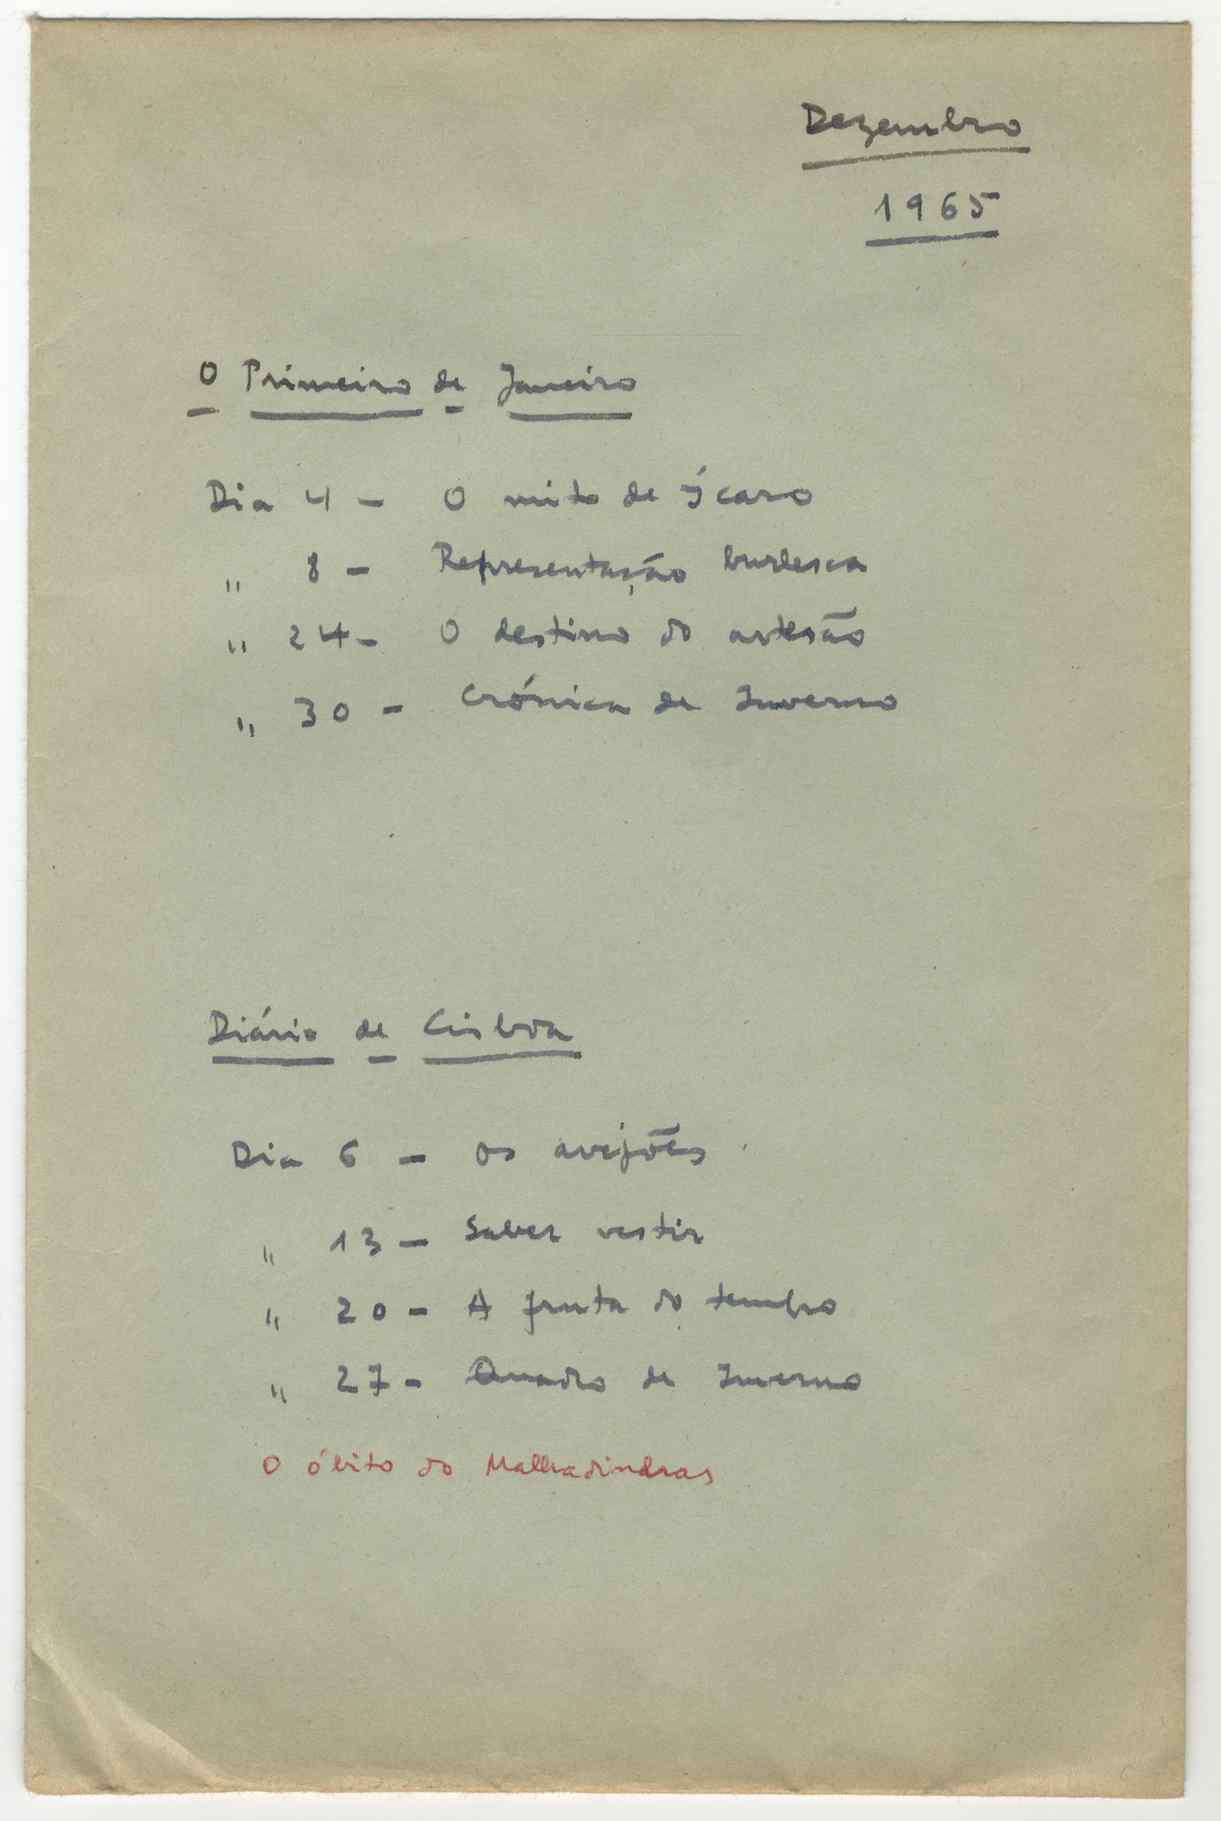 Dezembro
1965
O Primeiro de Janeiro
Dia 4 - O mito de Ícaro
" 8 - Representação burlesca
" 24 - O destino do artesão
" 30 - Crónica de Inverno
Diário de Lisboa
Dia 6 - Os avejões
" 13 - Saber vestir
" 20 - A fruta do tempo
" 27 - Quadro de Inverno
O óbito do Malhadinhas